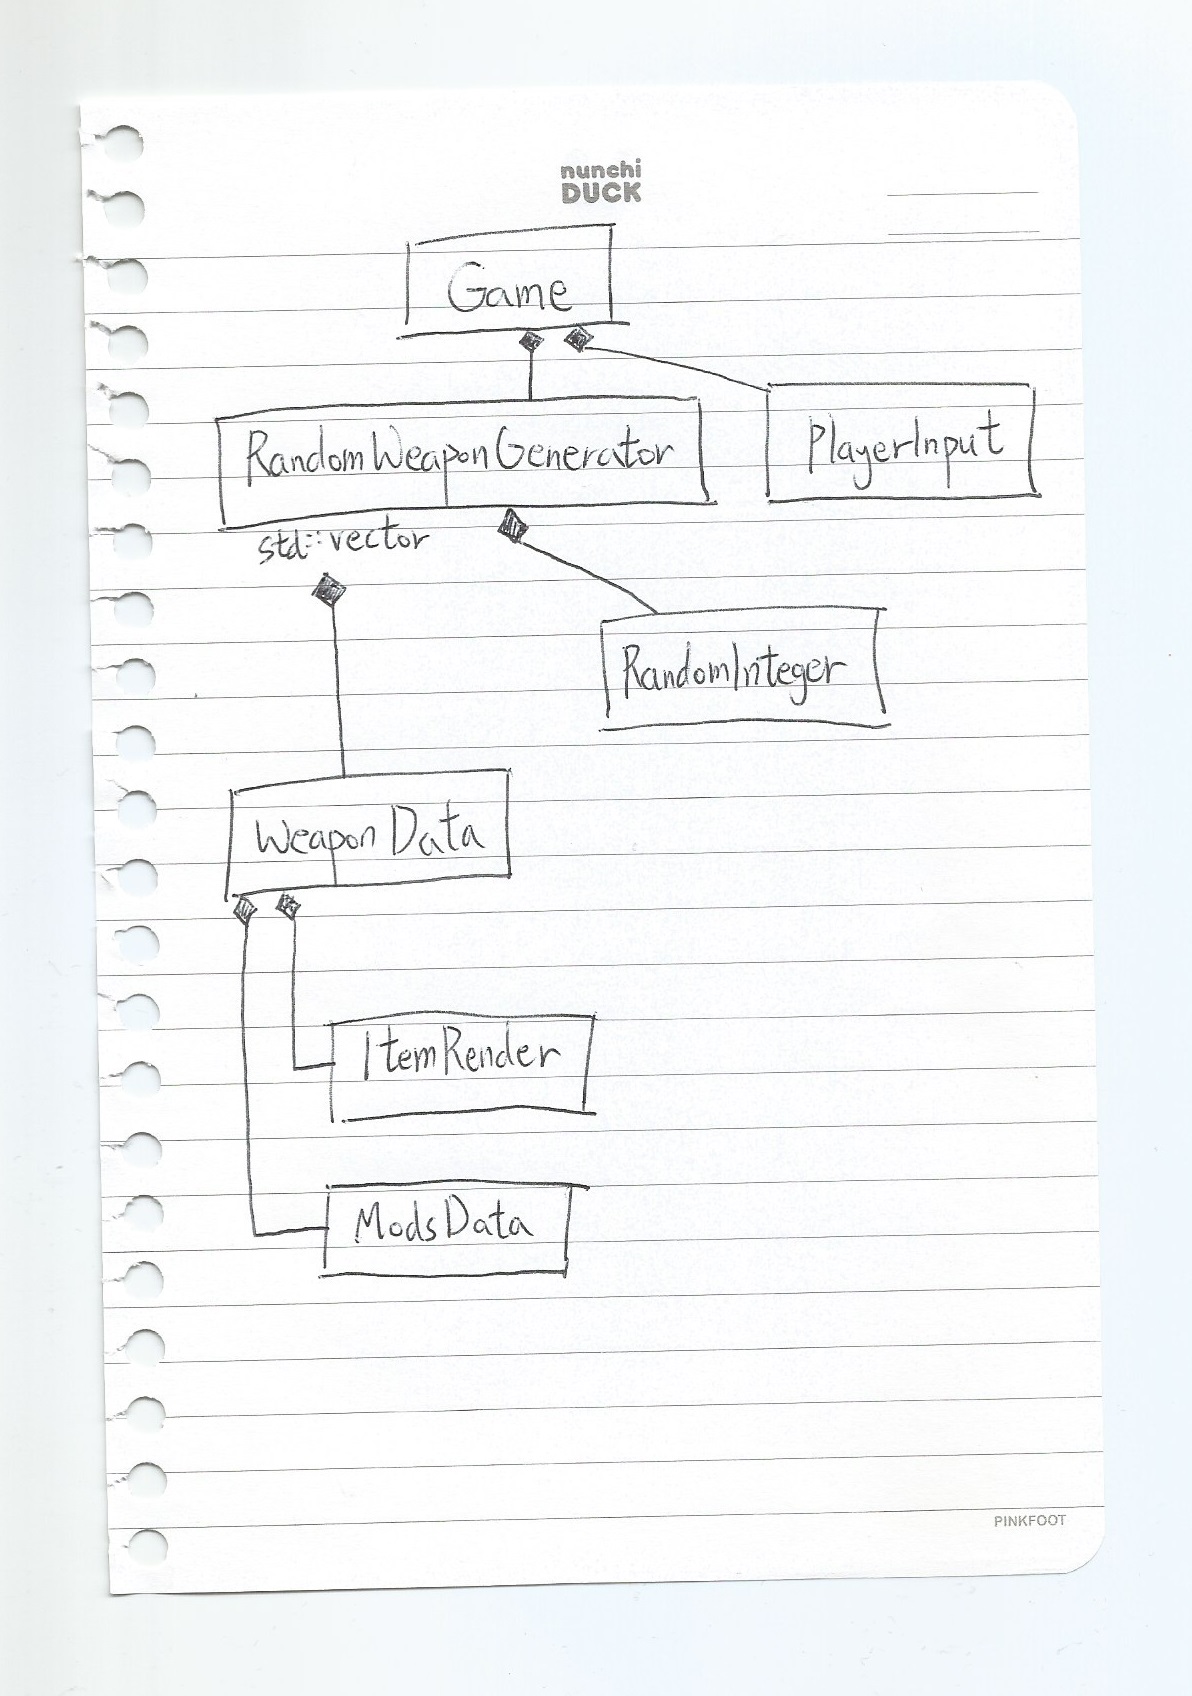 nunchi
DUCK
Game
RandomWeaponGenerator
PlayerInput
std::vector
RandomInteger
Weapon Data
ItemRender
ModsData
PINKFOOT